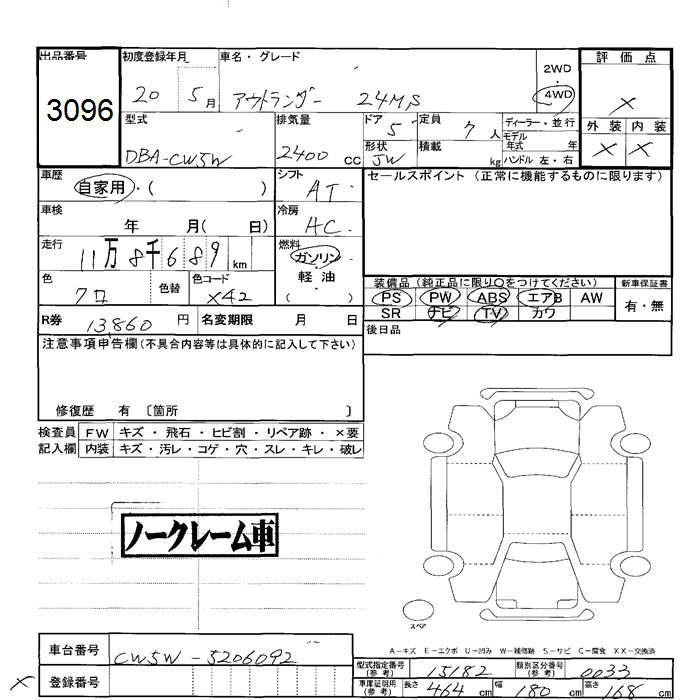 出品番号 初度登録年月 車名・グレード 2WD 評価点
3096 20 5月 アウトランダー 24MS 4WD ×
型式 排気量 ドア 定員 ディーラー・並行 外装 内装
DBA-CW5W 2400cc 5 7人 モデル年式 年 × ×
形状 積載 ハンドル 左・右
5W kg
車歴 シフト セールスポイント (正常に機能するものに限ります)
自家用・( ) AT
車検 冷房
年 月( 日) AC
走行 燃料
11万8千689km ガソリン
軽油
色 色替 色コード ( )
クロ X42
装備品 (純正品に限り○をつけてください) 新車保証書
PS PW ABS エアB AW 有・無
SR ナビ TV カワ
R券 13,860円 名変期限 月 日 後日品
注意事項申告欄(不具合内容等は具体的に記入して下さい)
修復歴 有 〔箇所 〕
検査員 FW キズ・飛石・ヒビ割・リペア跡・×要
記入欄 内装 キズ・汚レ・コゲ・穴・スレ・キレ・破レ
ノークレーム車
スペア
A-キズ E-エクボ U-凹み W-補修跡 S-サビ C-腐食 XX-交換済
車台番号 CW5W-5206092
型式指定番号(参考) 15182 類別区分番号(参考) 0033
× 登録番号
車庫証明用(参考) 長さ 464cm 幅 180cm 高さ 168cm